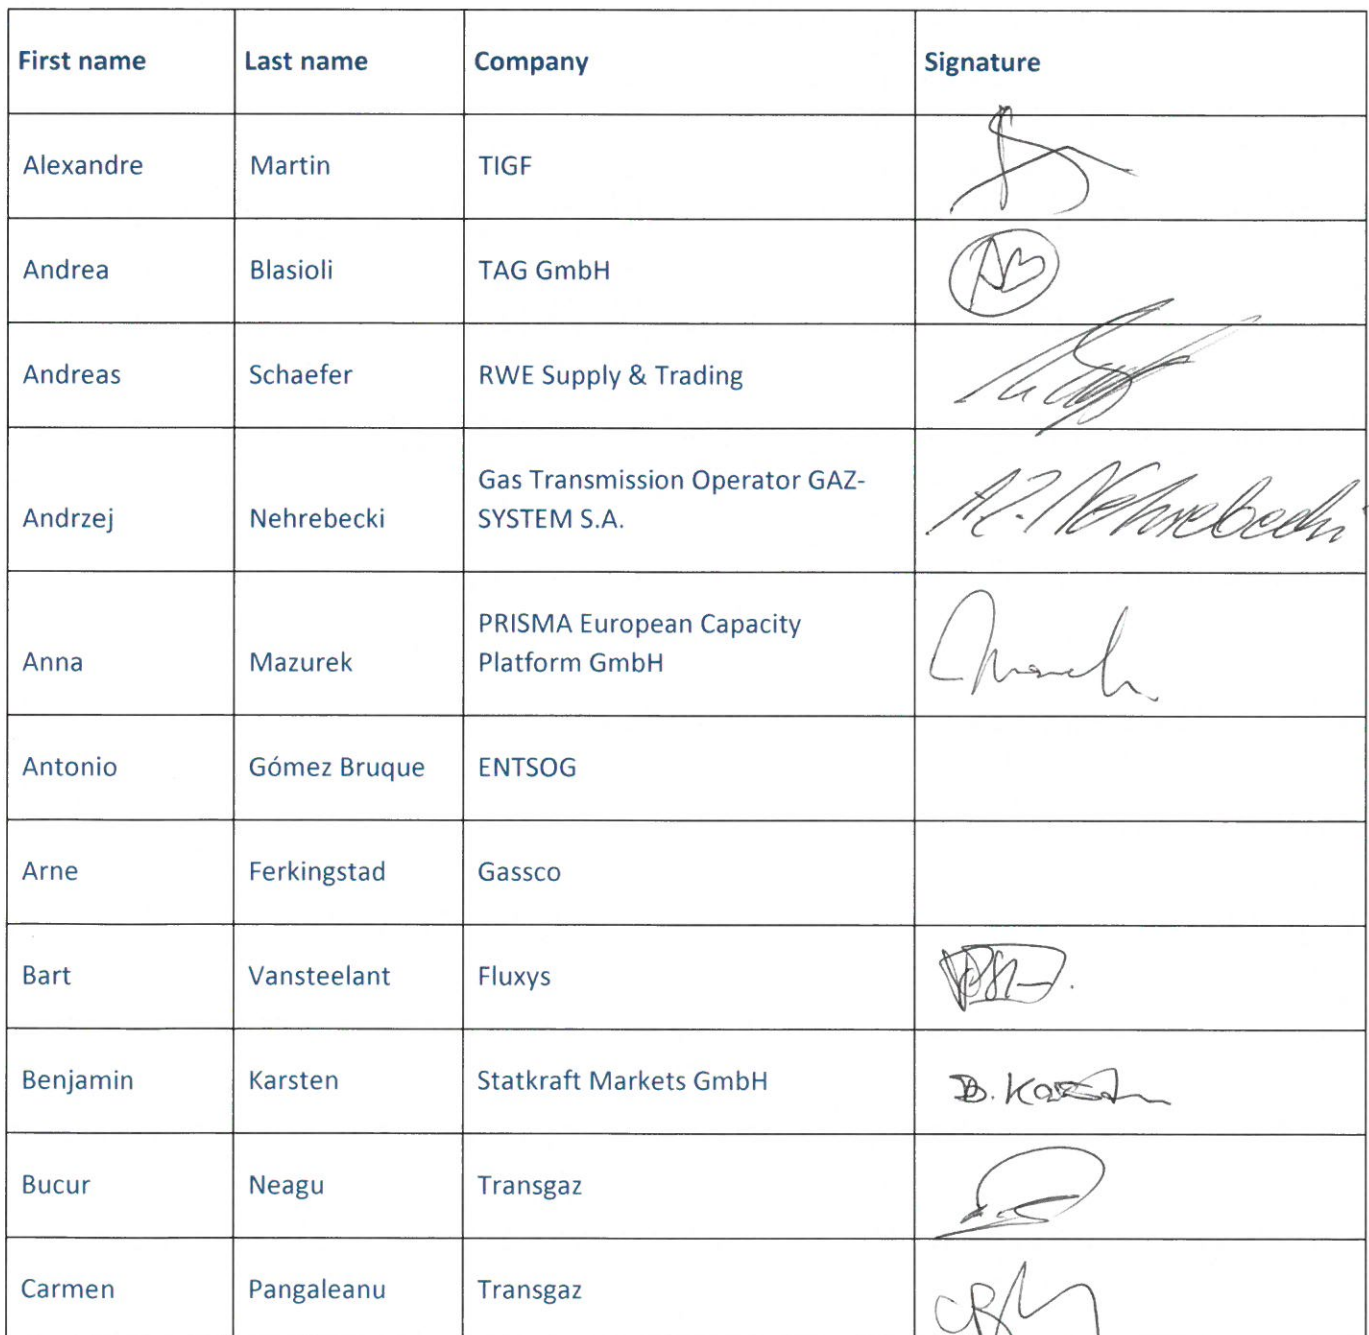 First name Last name Company Signature
Alexandre Martin TIGF
Andrea Blasioli TAG GmbH AB
Andreas Schaefer RWE Supply & Trading
Gas Transmission Operator GAZ-
Andrzej Nehrebecki SYSTEM S.A. Nehrebecki
PRISMA European Capacity
Anna Mazurek Platform GmbH
Antonio Gómez Bruque ENTSOG
Arne Ferkingstad Gassco
Bart Vansteelant Fluxys
Benjamin Karsten Statkraft Markets GmbH B. Karsten
Bucur Neagu Transgaz
Carmen Pangaleanu Transgaz